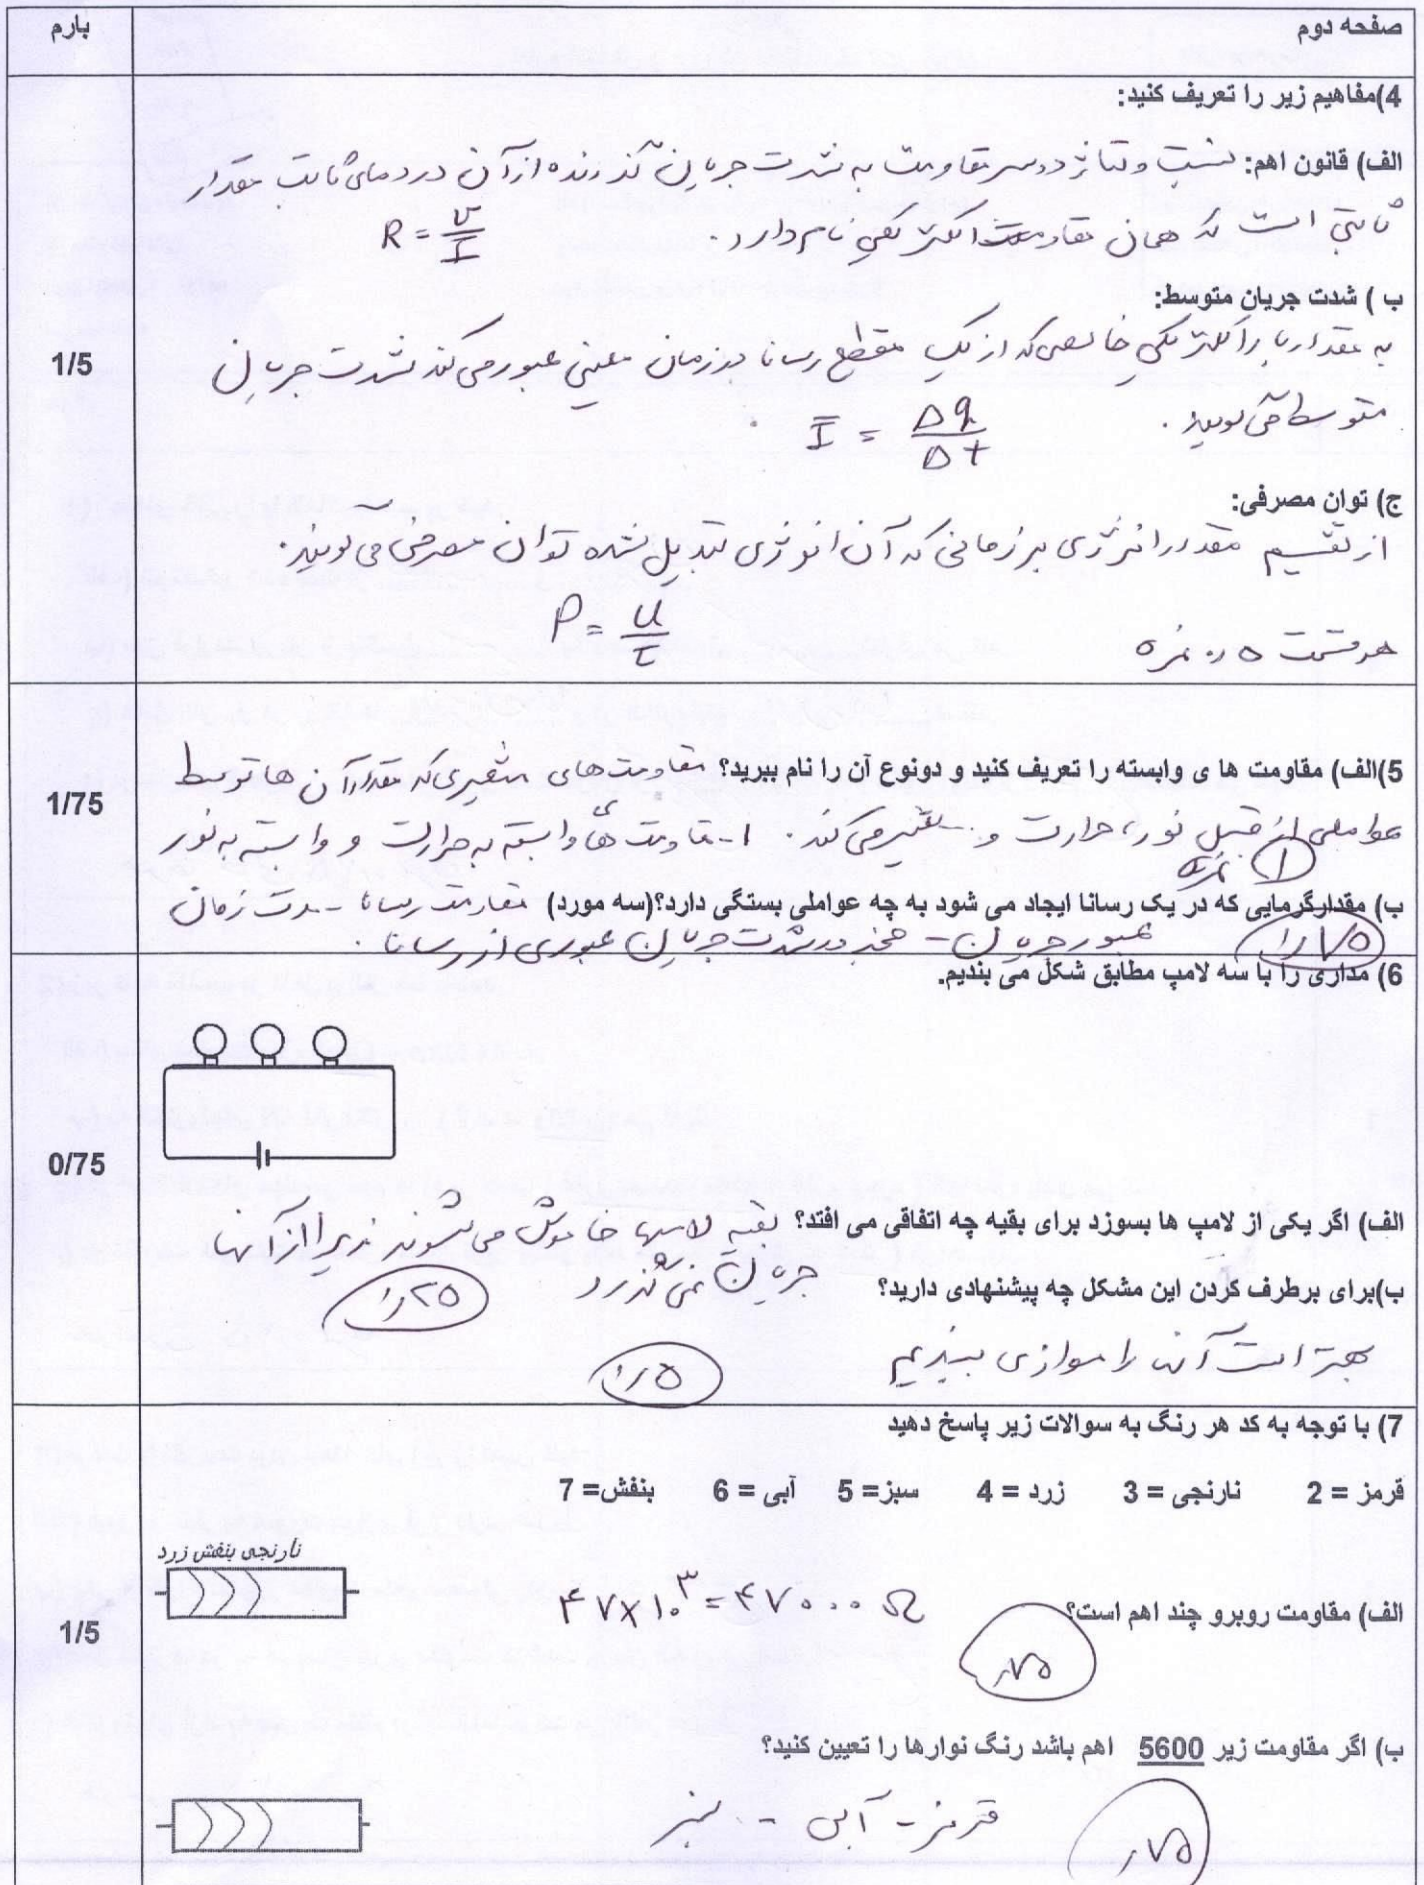 صفحه دوم
بارم
4)مفاهیم زیر را تعریف کنید:
الف) قانون اهم: نسبت ولتاژ دوسر مقاومت به شدت جریان گذرنده از آن در دمای ثابت مقدار
ثابتی است که همان مقاومت الکتریکی نام دارد.
R = V/I
ب ) شدت جریان متوسط:
به مقدار بار الکتریکی خالصی که از یک مقطع رسانا در زمان معینی عبور می کند شدت جریان
متوسط می گویند.
Ī = Δq/Δt
1/5
ج) توان مصرفی:
از تقسیم مقدار انرژی بر زمانی که آن انرژی تبدیل شده توان مصرفی می گویند.
P = U/t
هر قسمت ۰٫۵ نمره
5)الف) مقاومت ها ی وابسته را تعریف کنید و دونوع آن را نام ببرید؟ مقاومت های متغیری که مقدار آن ها توسط
عواملی از قبیل نور، حرارت و .. تغییر می کند. مقاومت های وابسته به حرارت و وابسته به نور
۱ نمره
1/75
ب) مقدارگرمایی که در یک رسانا ایجاد می شود به چه عواملی بستگی دارد؟(سه مورد) مقاومت رسانا - مدت زمان
عبور جریان - مجذور شدت جریان عبوری از رسانا.
۰٫۷۵
6) مداری را با سه لامپ مطابق شکل می بندیم.
0/75
الف) اگر یکی از لامپ ها بسوزد برای بقیه چه اتفاقی می افتد؟ بقیه لامپها خاموش می شوند زیرا از آنها
جریان نمی گذرد
۰٫۲۵
ب)برای برطرف کردن این مشکل چه پیشنهادی دارید؟
بهتر است آن را موازی ببندیم
۰٫۵
7) با توجه به کد هر رنگ به سوالات زیر پاسخ دهید
قرمز = 2 نارنجی = 3 زرد = 4 سبز= 5 آبی = 6 بنفش= 7
نارنجی بنفش زرد
الف) مقاومت روبرو چند اهم است؟
۴۷×۱۰^۳ = ۴۷۰۰۰ Ω
۰٫۷۵
1/5
ب) اگر مقاومت زیر 5600 اهم باشد رنگ نوارها را تعیین کنید؟
قرمز - آبی - سبز
۰٫۷۵